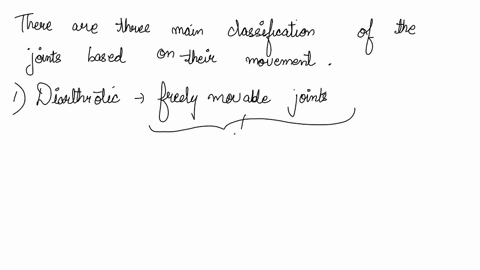 There are three main classification of the
joints based on their movement.
1) Diarthrotic → freely movable joints